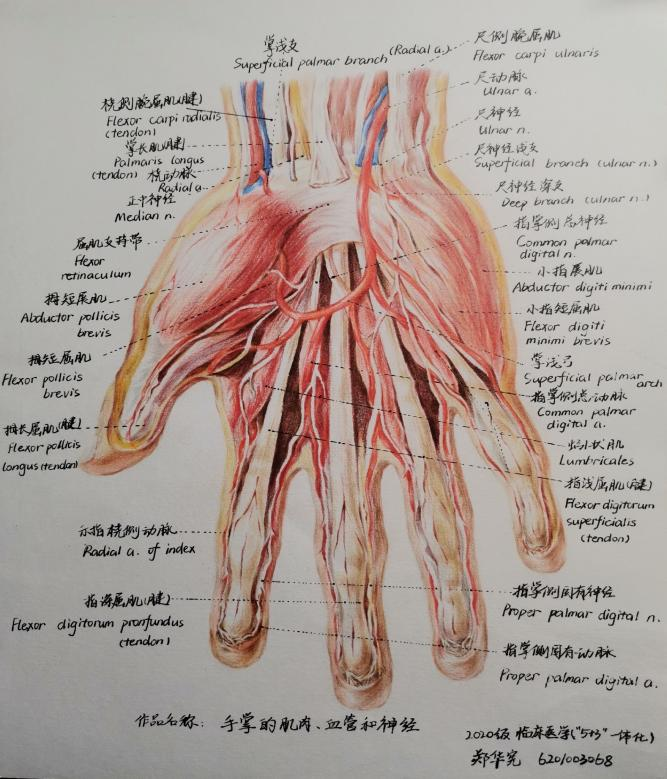 掌浅支
Superficial palmar branch (Radial a.)
桡侧腕屈肌(腱)
Flexor carpi radialis
(tendon)
掌长肌(腱)
Palmaris longus
(tendon)
桡动脉
Radial a.
正中神经
Median n.
屈肌支持带
Flexor
retinaculum
拇短展肌
Abductor pollicis
brevis
拇短屈肌
Flexor pollicis
brevis
拇长屈肌(腱)
Flexor pollicis
longus (tendon)
示指桡侧动脉
Radial a. of index
指深屈肌(腱)
Flexor digitorum pronfundus
(tendon)
尺侧腕屈肌
Flexor carpi ulnaris
尺动脉
Ulnar a.
尺神经
Ulnar n.
尺神经浅支
Superficial branch (ulnar n.)
尺神经深支
Deep branch (ulnar n.)
指掌侧总神经
Common palmar
digital n.
小指展肌
Abductor digiti minimi
小指短屈肌
Flexor digiti
minimi brevis
掌浅弓
Superficial palmar arch
指掌侧总动脉
Common palmar
digital a.
蚓状肌
Lumbricales
指浅屈肌(腱)
Flexor digitorum
superficialis
(tendon)
指掌侧固有神经
Proper palmar digital n.
指掌侧固有动脉
Proper palmar digital a.
作品名称: 手掌的肌肉、血管和神经
2020级 临床医学("5+3"一体化)
郑华宪 6201003068